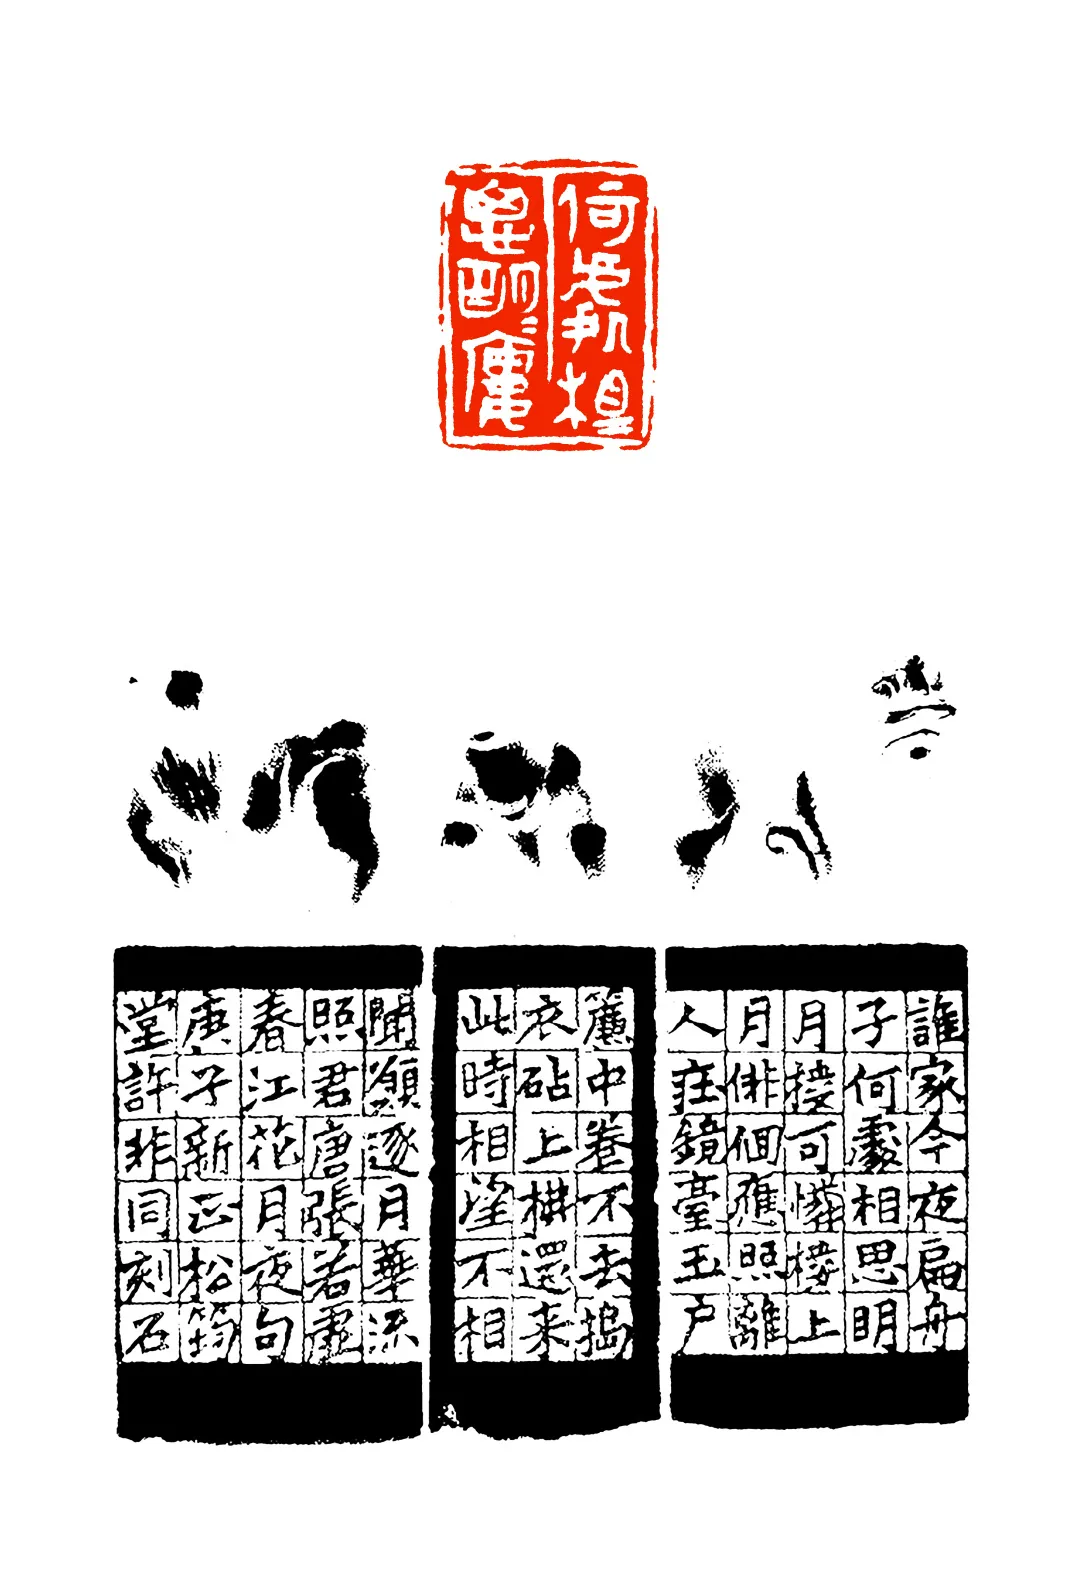 何處相
思明月樓
誰家今夜扁舟
子何處相思明
月樓可憐樓上
月俳佪應照離
人妝鏡臺玉戶
簾中卷不去搗
衣砧上拂還来
此時相望不相
聞願逐月華流
照君唐張若虛
春江花月夜句
庚子新正松筠
堂許非同刻石